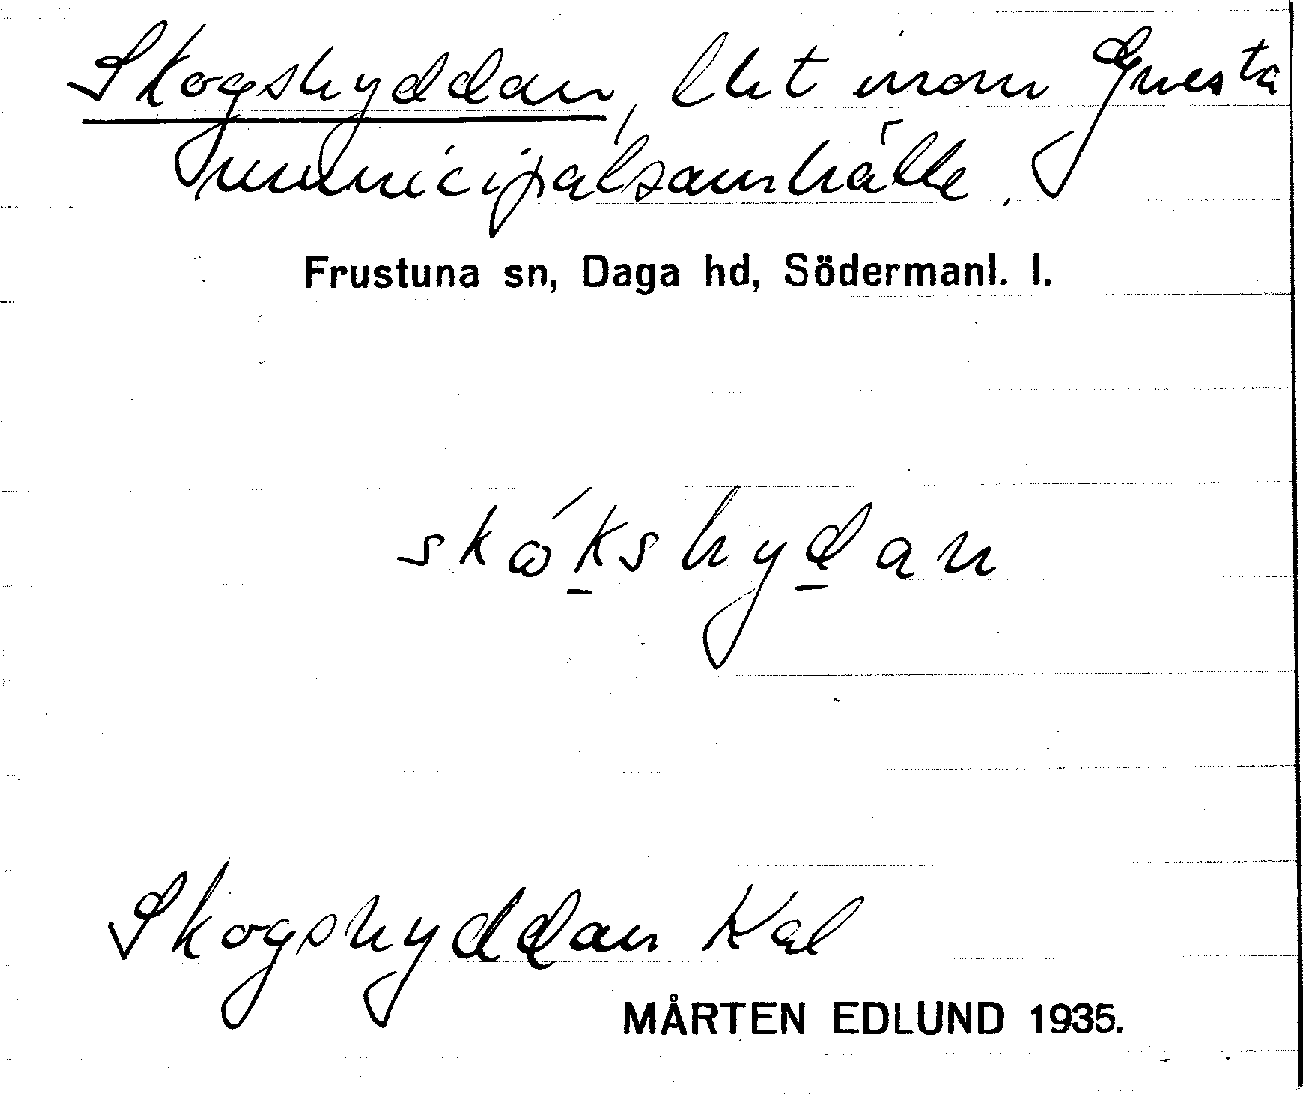 Skogshyddan, lht inom Gnesta
municipalsamhälle.
Frustuna sn, Daga hd, Södermanl. l.
skώkshydan
Skogshyddan Kal
MÅRTEN EDLUND 1935.